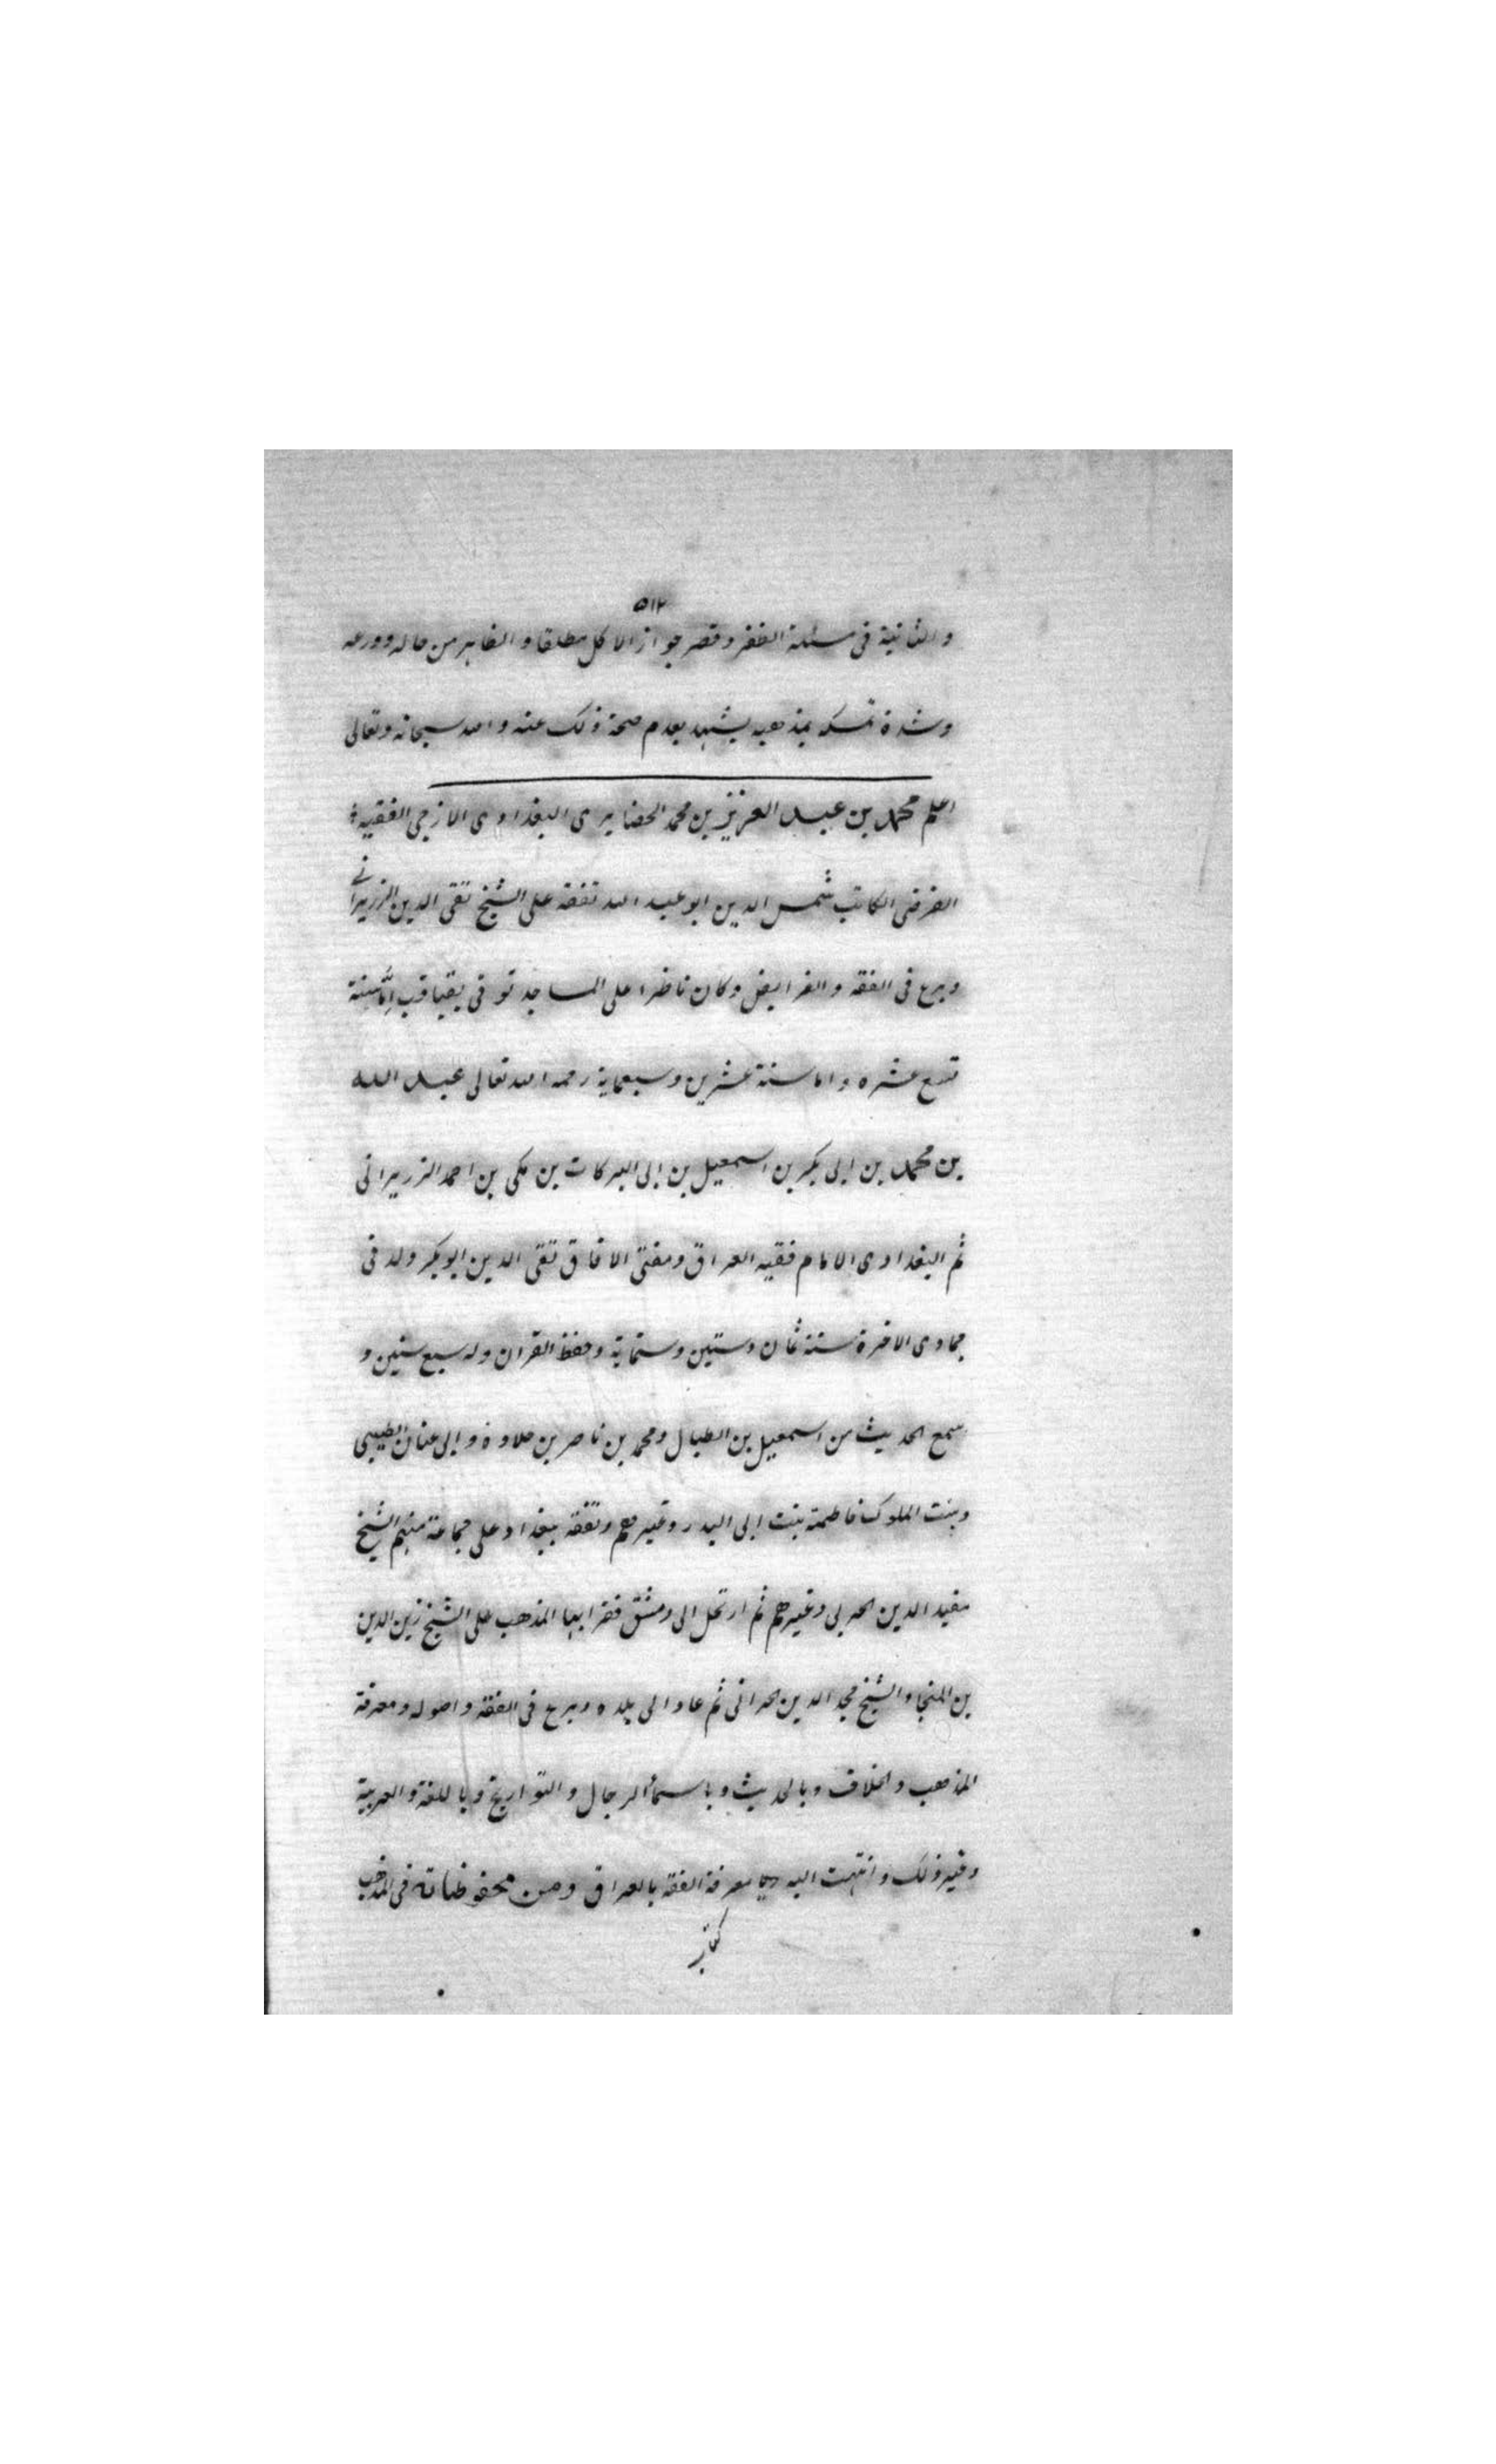 ٥١٢
والثانية في مسئلة الظفر وقصر جواز الاكل مطلقا والظاهر من حاله وورعه
وشدة تمسكه بمذهبه يشهد بعدم صحة ذلك عنه والله سبحانه وتعالى
اعلم محمد بن عبد العزيز بن محمد الحضايرى البغدادى الازجى الفقيه
الفرضى الكاتب شمس الدين ابو عبد الله تفقه على الشيخ تقى الدين الزريرانى
وبرع فى الفقه والفرايض وكان ناظرا على المساجد توفى اما سنة
تسع عشره واما سنة عشرين وسبعماية رحمه الله تعالى عبد الله
بن محمد بن ابى بكر بن اسمعيل بن ابى البركات بن مكى بن احمد الزريرانى
ثم البغدادى الامام فقيه العراق ومفتى الافاق تقى الدين ابو بكر ولد فى
جمادى الاخرة سنة ثمان وستين وستماية وحفظ القران وله سبع سنين و
سمع الحديث من اسمعيل بن الطبال ومحمد بن ناصر بن حلاوة وابى عنان الطيبى
وبنت الملوك فاطمة بنت ابى البدر وغيرهم وتفقه ببغداد على جماعة منهم الشيخ
مفيد الدين الحربى وغيرهم ثم ارتحل الى دمشق فقرا بها المذهب على الشيخ زين الدين
بن المنجا والشيخ مجد الدين الحرانى ثم عاد الى بلده وبرع فى الفقه واصوله ومعرفة
المذهب والخلاف وبالحديث وباسمأ الرجال والتواريخ وباللغة والعربية
وغير ذلك وانتهت اليه معرفة الفقه بالعراق ومن محفوظاته فى المذهب
كتاب